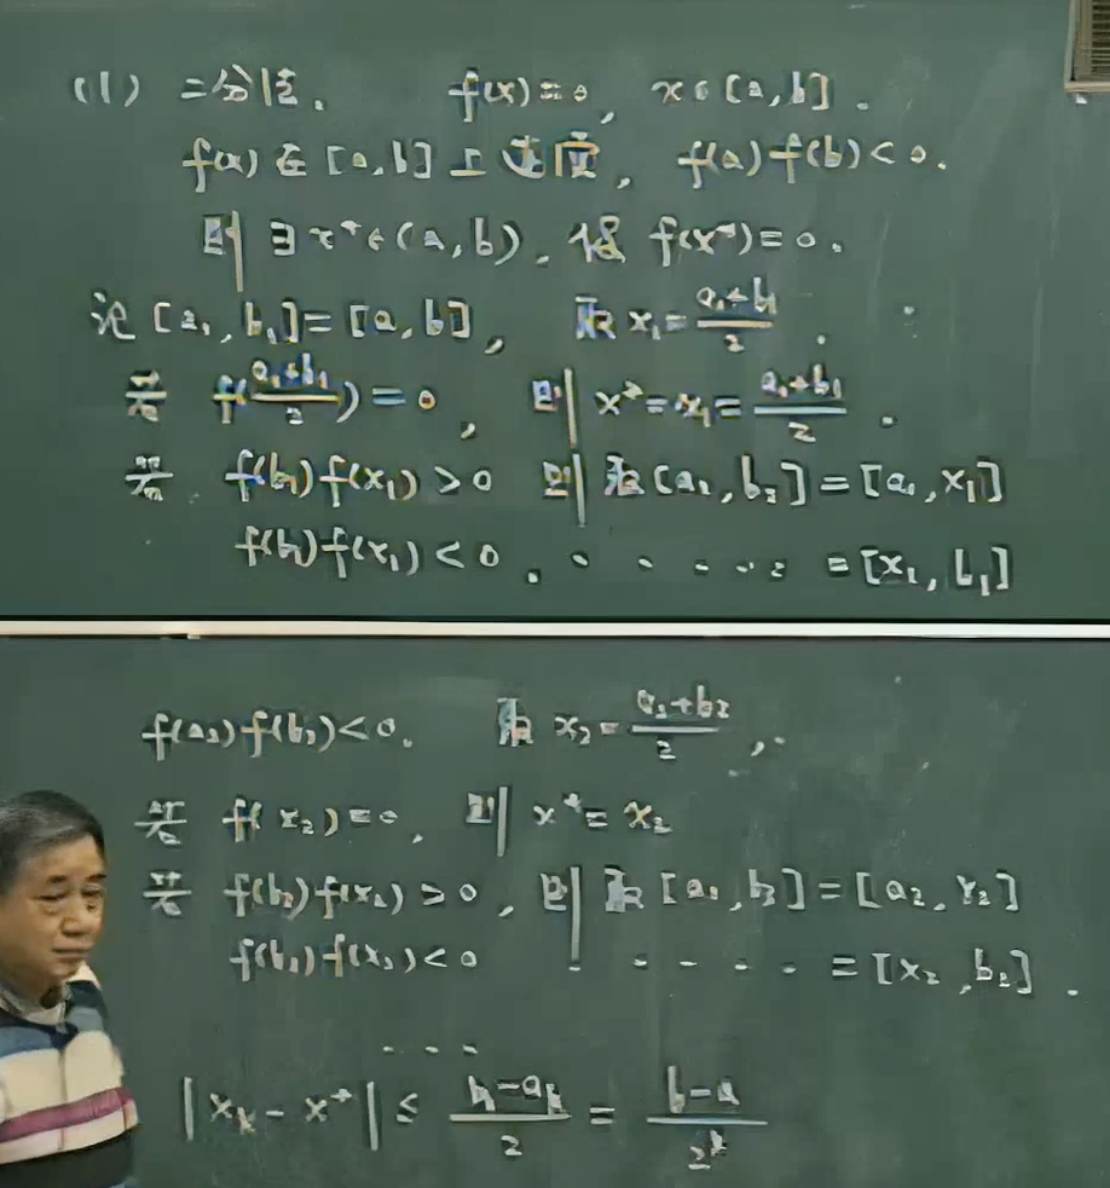 (1) 二分法. f(x)=0, x∈[a,b].
f(x)在[a,b]上连续, f(a)f(b)<0.
则∃x*∈(a,b). 使 f(x*)=0.
记[a₁,b₁]=[a,b], 取 x₁=(a₁+b₁)/2.
若 f((a₁+b₁)/2)=0, 则 x*=x₁=(a₁+b₁)/2.
若 f(b₁)f(x₁)>0 则取[a₂,b₂]=[a₁,x₁]
f(b₁)f(x₁)<0. ····· =[x₁,b₁]
f(a₂)f(b₂)<0. 取 x₂=(a₂+b₂)/2,
若 f(x₂)=0, 则 x*=x₂
若 f(b₂)f(x₂)>0, 则取[a₃,b₃]=[a₂,x₂]
f(b₂)f(x₂)<0 ····· =[x₂,b₂].
···
|xₖ-x*|≤(bₖ-aₖ)/2=(b-a)/2ᵏ